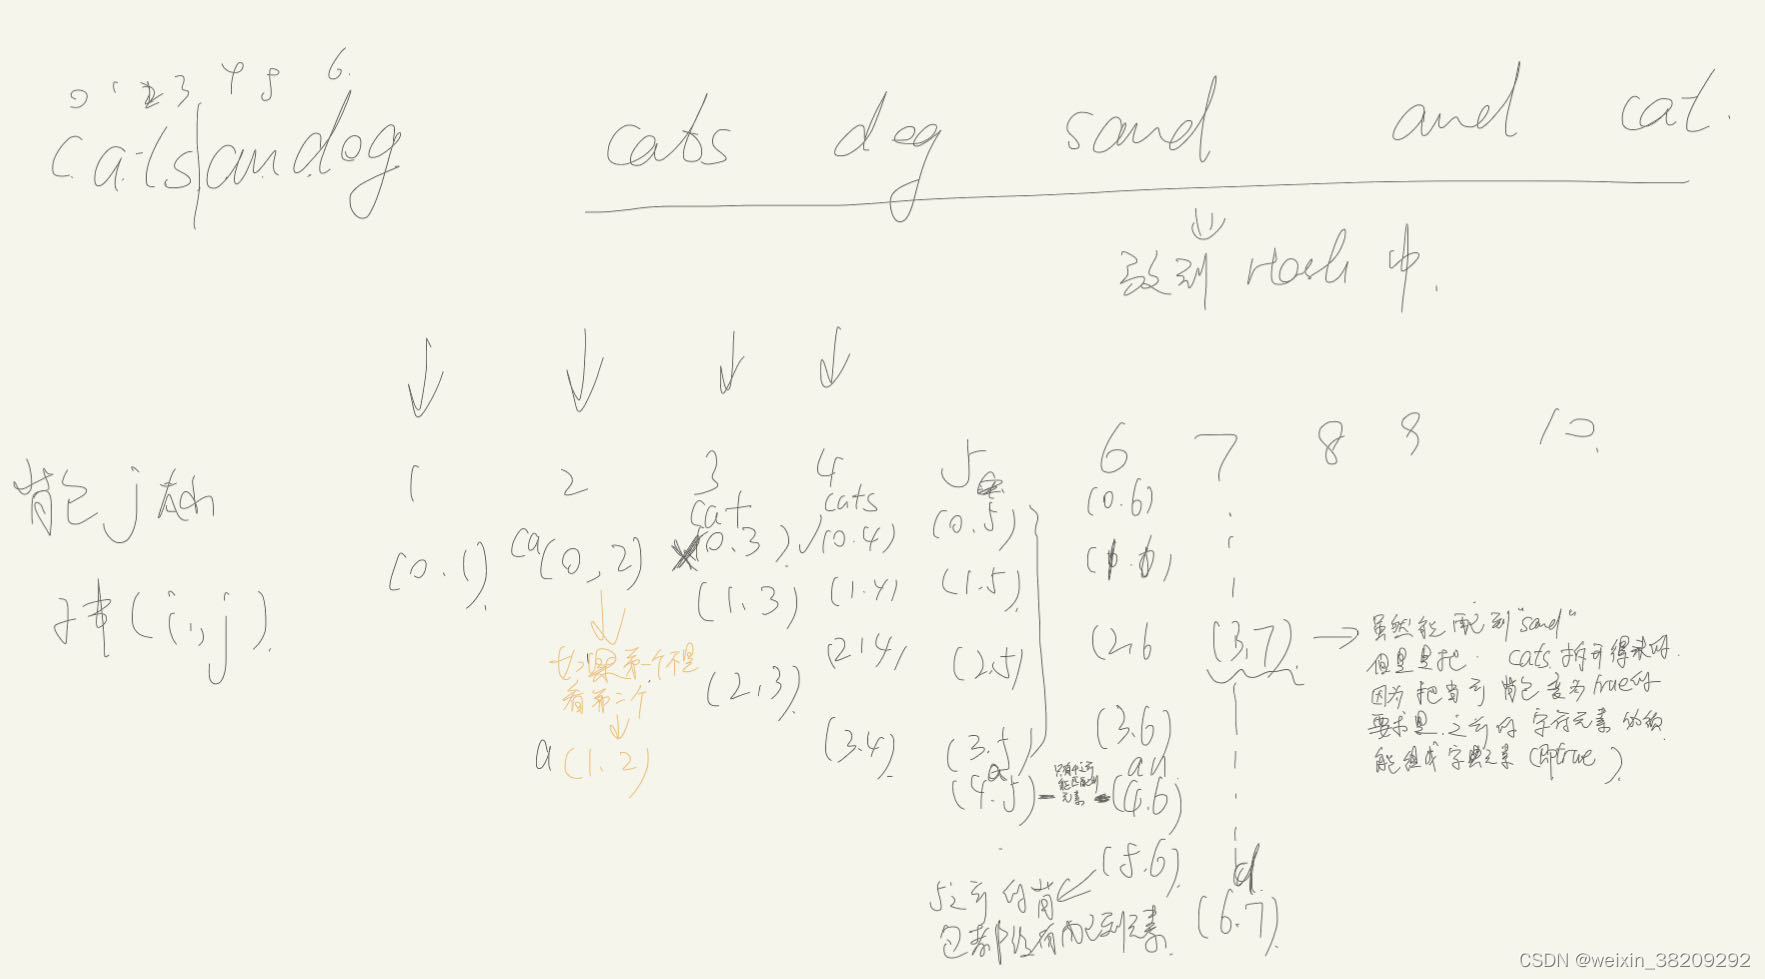 0 1 2 3 4 5 6.
catsandog
cats dog sand and cat.
放到 Hash 中.
1 2 3 4 5 6 7 8 9 10.
背包j
cat cats
(0.1) ca(0,2) (0.3) (0.4) (0.5) (0.6)
(i,j).
(1,3) (1.4) (1.5)
如果第一个不是
看第二个
a (1.2)
(2,3) (2,4) (2,5) (2,6 (3,7)
(3.4) (3.5) (3.6)
a an
(4.5) (4.6)
只有4之前
能匹配到
元素
(5.6)
d
(6.7)
5之前的背
包都没有匹配到元素
虽然能匹配到"sand"
但是是把 cats 拆开得来的.
因为把当前背包变为true的
要求是.之前的字符元素必须
能组成字典元素(即true)
CSDN @weixin_38209292